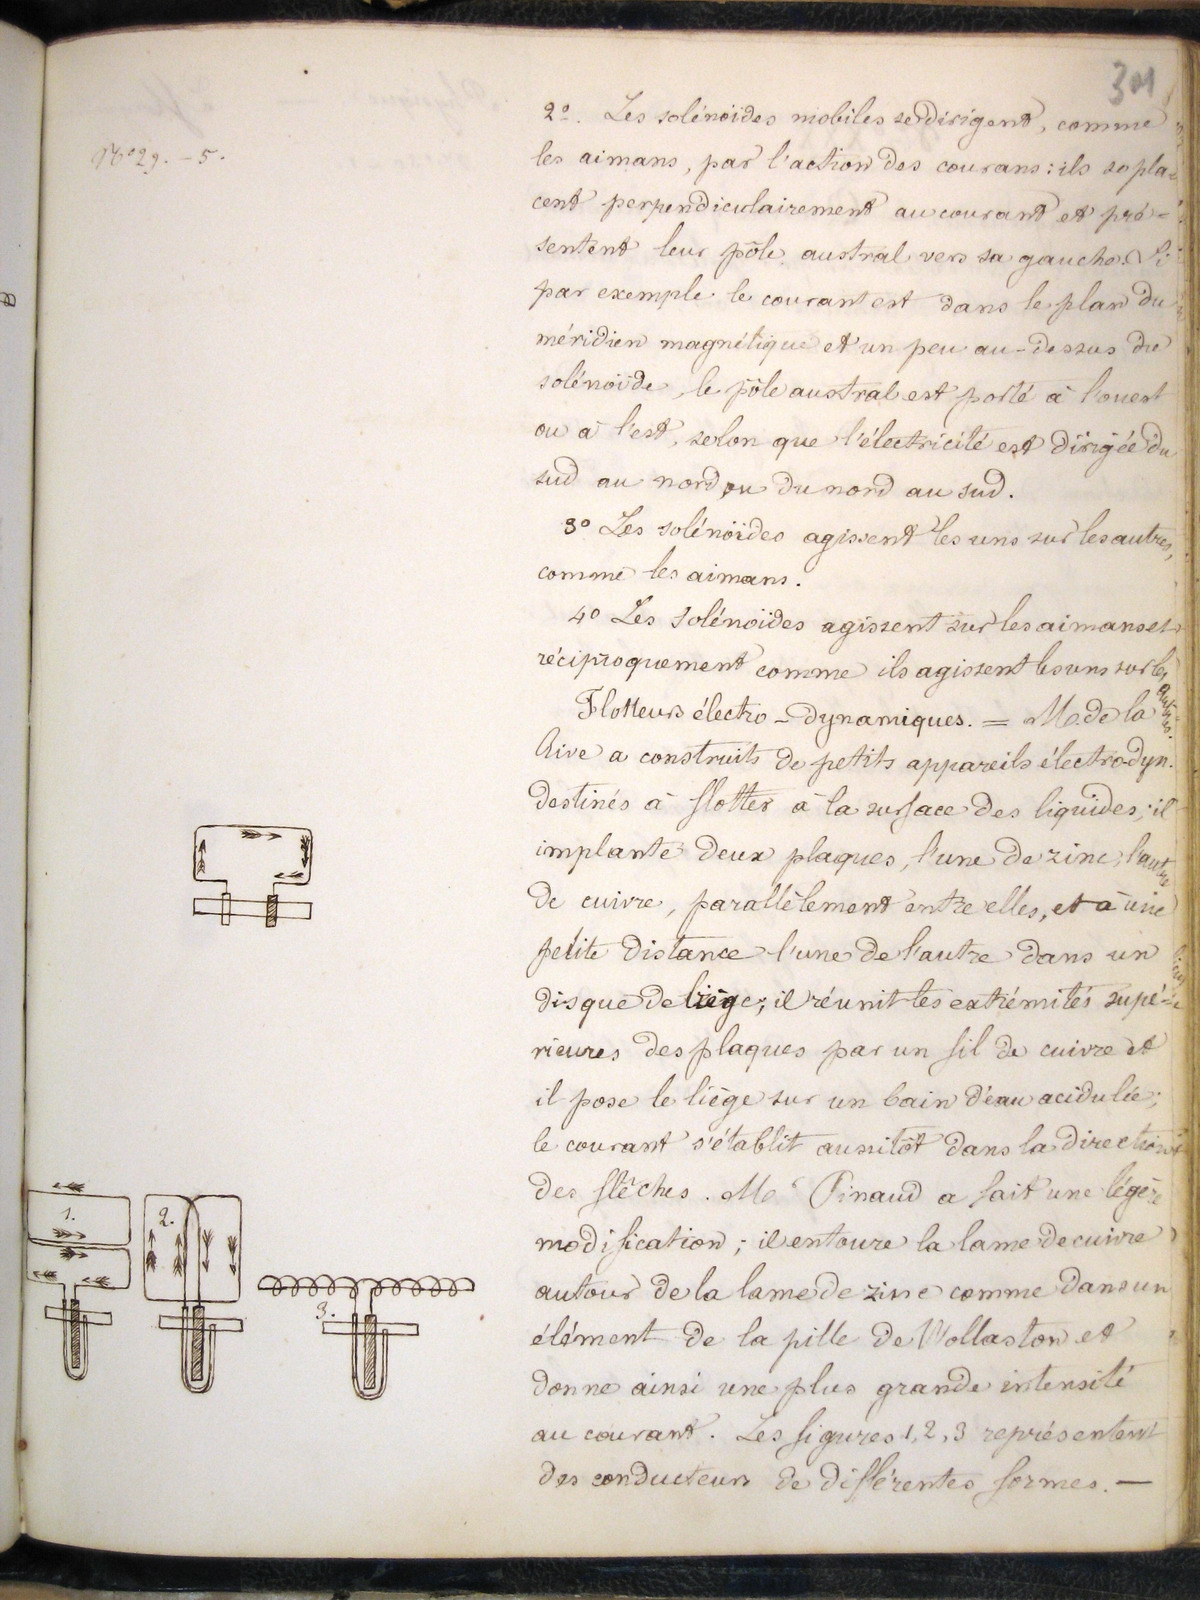 301
N° 29. - 5.
2°. Les solénoïdes mobiles se dirigent, comme
les aimans, par l'action des courans : ils se pla=
cent perpendiculairement au courant et pré=
sentent leur pôle austral vers sa gauche. Si
par exemple le courant est dans le plan du
méridien magnétique et un peu au-dessus du
solénoïde, le pôle austral est porté à l'ouest
ou à l'est, selon que l'électricité est dirigée du
sud au nord ou du nord au sud.
3° Les solénoïdes agissent les uns sur les autres,
comme les aimans.
4° Les solénoïdes agissent sur les aimans et
réciproquement comme ils agissent les uns sur les autres.
Flotteurs électro-dynamiques. = Mr de la
Rive a construits de petits appareils électrodyn.
destinés à flotter à la surface des liquides; il
implante deux plaques, l'une de zinc, l'autre
de cuivre, parallèlement entre elles, et à une
petite distance l'une de l'autre dans un
disque de liège; il réunit les extrémités supé=
rieures des plaques par un fil de cuivre et
il pose le liège sur un bain d'eau acidulée;
le courant s'établit aussitôt dans la direction
des flêches. Mr Pinaud a fait une légère
modification; il entoure la lame de cuivre
autour de la lame de zinc comme dans un
élément de la pille de Wollaston et
donne ainsi une plus grande intensité
au courant. Les figures 1, 2, 3 représentent
des conducteurs de différentes formes. —
1.
2.
3.